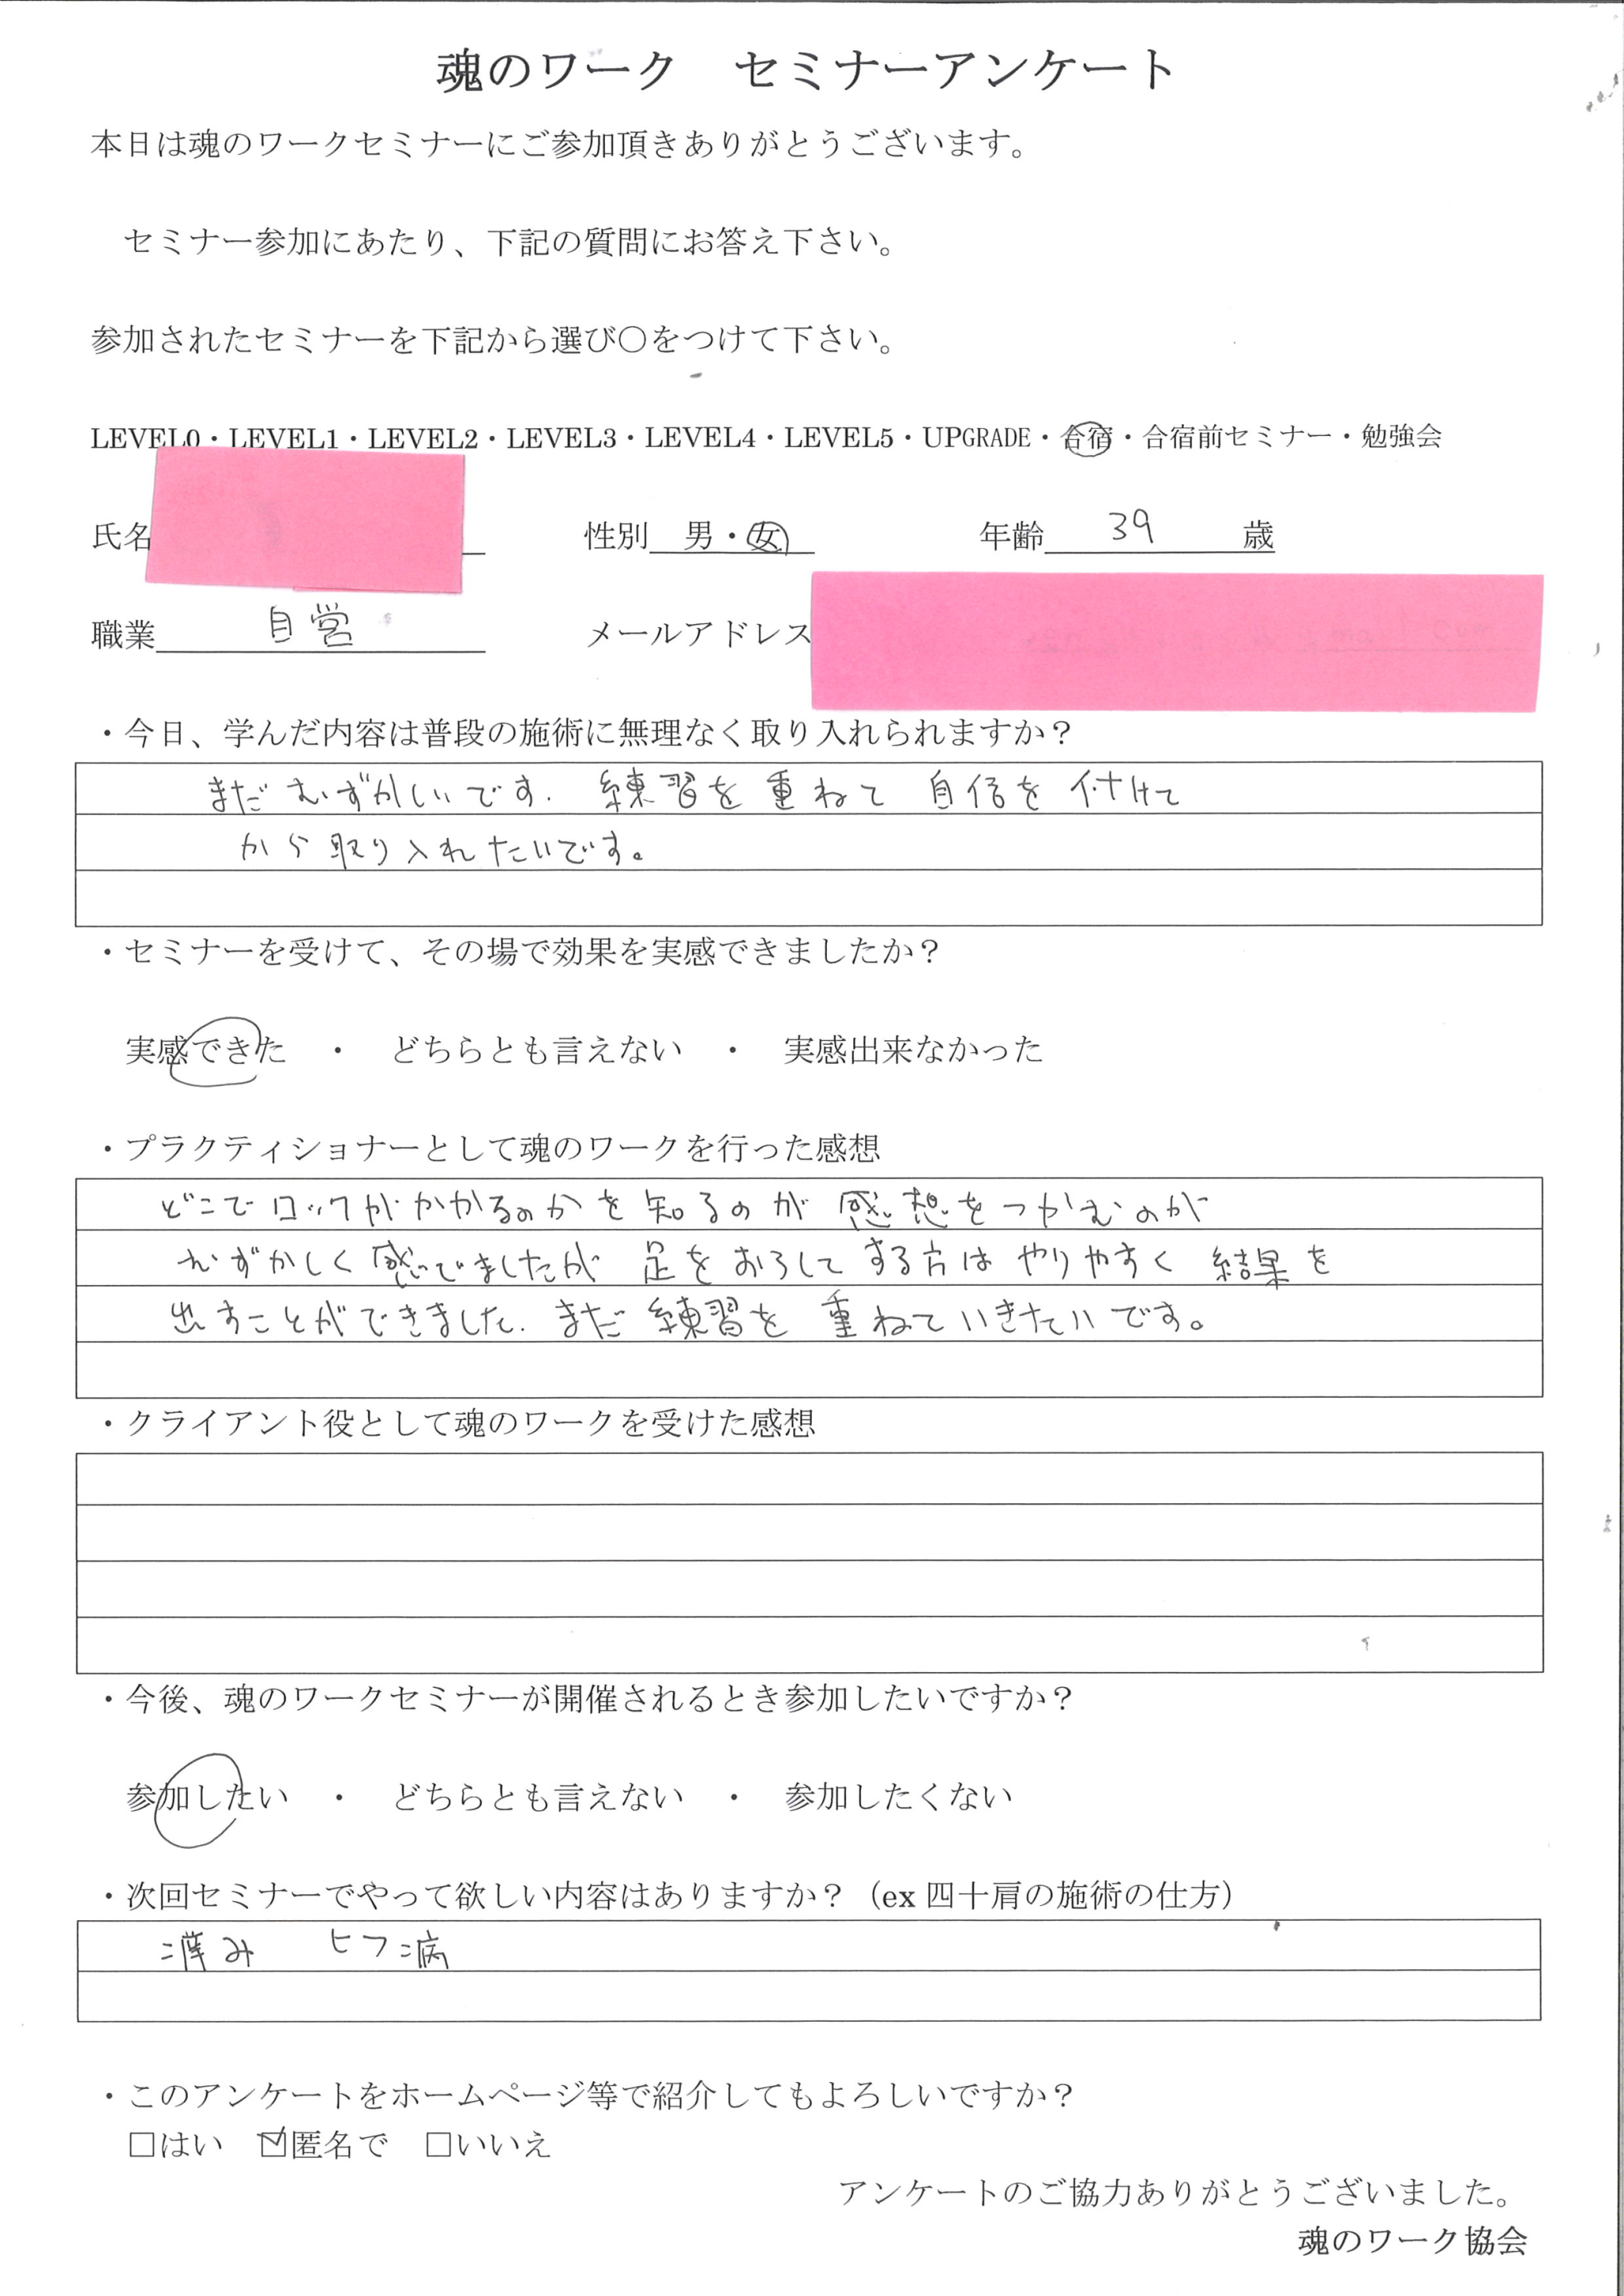 魂のワーク　セミナーアンケート
本日は魂のワークセミナーにご参加頂きありがとうございます。
セミナー参加にあたり、下記の質問にお答え下さい。
参加されたセミナーを下記から選び〇をつけて下さい。
LEVEL0・LEVEL1・LEVEL2・LEVEL3・LEVEL4・LEVEL5・UPGRADE・合宿・合宿前セミナー・勉強会
氏名　性別　男・女　年齢　39　歳
職業　自営　メールアドレス
・今日、学んだ内容は普段の施術に無理なく取り入れられますか？
まだむずかしいです. 練習を重ねて自信を付けて
から取り入れたいです。
・セミナーを受けて、その場で効果を実感できましたか？
実感できた　・　どちらとも言えない　・　実感出来なかった
・プラクティショナーとして魂のワークを行った感想
どこでロックがかかるのかを知るのが感想をつかむのが
むずかしく感じましたが足をおろしてする方はやりやすく結果を
出すことができました. まだ練習を重ねていきたいです。
・クライアント役として魂のワークを受けた感想
・今後、魂のワークセミナーが開催されるとき参加したいですか？
参加したい　・　どちらとも言えない　・　参加したくない
・次回セミナーでやって欲しい内容はありますか？（ex 四十肩の施術の仕方）
ヒフ病
・このアンケートをホームページ等で紹介してもよろしいですか？
□はい　☑匿名で　□いいえ
アンケートのご協力ありがとうございました。
魂のワーク協会